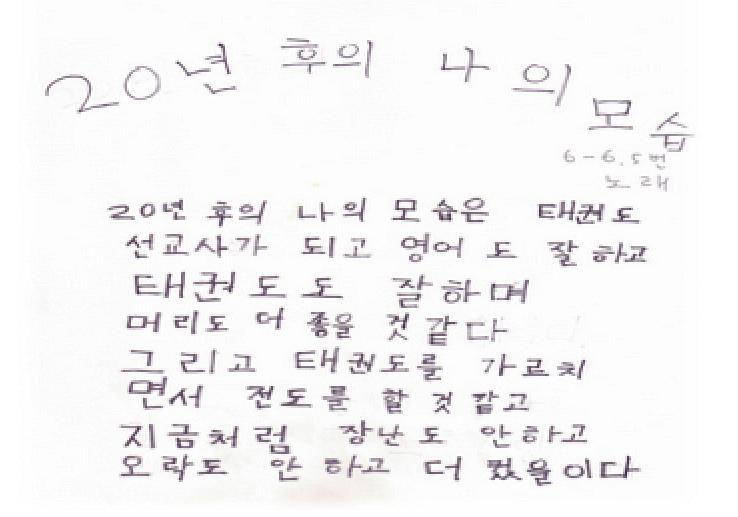 20년 후의 나의 모습
6-6. 5번
노래
20년 후의 나의 모습은 태권도
선교사가 되고 영어 도 잘 하고
태권도도 잘하며
머리도 더 좋을 것 같다
그리고 태권도를 가르치
면서 전도를 할 것 같고
지금처럼 장난도 안하고
오락도 안 하고 더 컸을이다